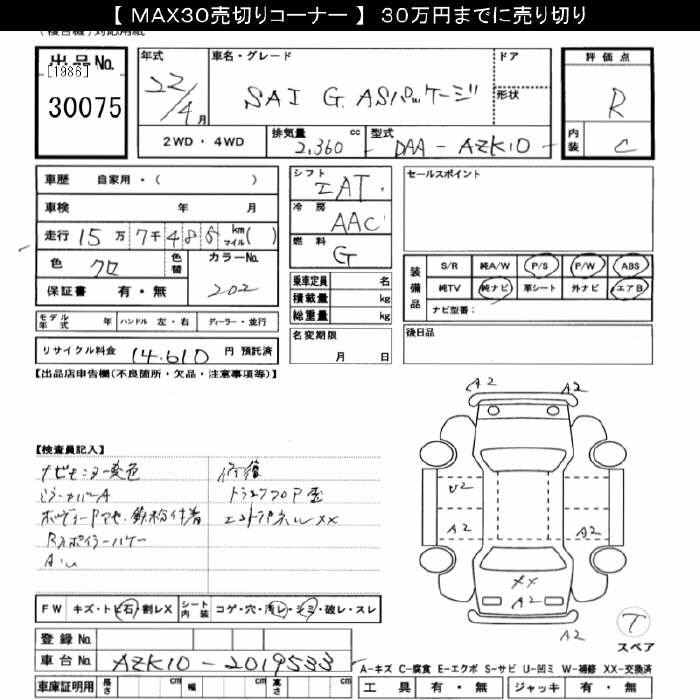 【 MAX30売切りコーナー 】 30万円までに売り切り
出品No.
[1986]
30075
年式 22/4月
車名・グレード SAI G ASパッケージ
ドア
形状
2WD・4WD
排気量 2,360 cc
型式 DAA-AZK10-
評価点 R
内装 C
車歴 自家用・( )
車検 年 月
走行 15万7千486 km マイル( )
色 クロ
色替
カラーNo. 202
保証書 有・無
シフト IAT
冷房 AAC
燃料 G
乗車定員 名
積載量 kg
総重量 kg
名変期限 月 日
セールスポイント
装備品
S/R 純A/W P/S P/W ABS
純TV 純ナビ 革シート 外ナビ エアB
ナビ型番:
後日品
モデル年式 年 ハンドル 左・右 ディーラー・並行
リサイクル料金 14,610 円 預託済
【出品店申告欄(不良箇所・欠品・注意事項等)】
【検査員記入】
ナビモニター変色
ミラーカバーA
鉄粉付着
Rスポイラーハゲ
A・U
修復
トランクフロア歪
エンドパネルXX
A2
A2
U2
A2
A2
XX
A2
A2
T
スペア
FW キズ・トビ石・割レX
シート内装 コゲ・穴・汚レ・シミ・破レ・スレ
登録No.
車台No. AZK10-2019533
A-キズ C-腐食 E-エクボ S-サビ U-凹ミ W-補修 XX-交換済
車庫証明用 長さ cm 幅 cm 高さ cm
工具 有・無 ジャッキ 有・無